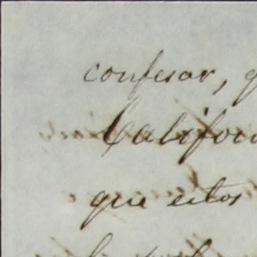 confesar, q
Califor
que estos